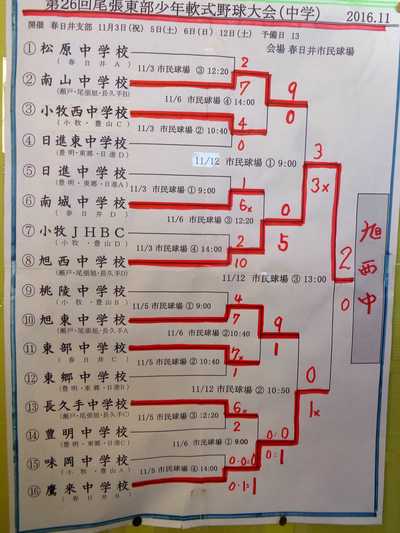 第26回尾張東部少年軟式野球大会(中学)
2016.11
開催 春日井支部 11月3日(祝) 5日(土) 6日(日) 12日(土) 予備日 13
会場 春日井市民球場
① 松原中学校
(春日井A)
② 南山中学校
(瀬戸・尾張旭・長久手B)
③ 小牧西中学校
(小牧・豊山C)
④ 日進東中学校
(豊明・東郷・日進D)
⑤ 日進中学校
(豊明・東郷・日進A)
⑥ 南城中学校
(春日井D)
⑦ 小牧JHBC
(小牧・豊山D)
⑧ 旭西中学校
(瀬戸・尾張旭・長久手D)
⑨ 桃陵中学校
(小牧・豊山B)
⑩ 旭東中学校
(瀬戸・尾張旭・長久手A)
⑪ 東部中学校
(春日井C)
⑫ 東郷中学校
(豊明・東郷・日進B)
⑬ 長久手中学校
(瀬戸・尾張旭・長久手C)
⑭ 豊明中学校
(豊明・東郷・日進C)
⑮ 味岡中学校
(小牧・豊山A)
⑯ 鷹来中学校
(春日井B)
11/3 市民球場 ③ 12:20
11/3 市民球場 ② 10:40
11/3 市民球場 ① 9:00
11/3 市民球場 ④ 14:00
11/5 市民球場 ① 9:00
11/5 市民球場 ② 10:40
11/5 市民球場 ③ 12:20
11/5 市民球場 ④ 14:00
2
7
4
0
1
6x
2
10
4
7
7x
1
6x
2
0:0:0
0:1:1
11/6 市民球場 ④ 14:00
11/6 市民球場 ③ 12:20
11/6 市民球場 ② 10:40
11/6 市民球場 ① 9:00
9
0
0
5
9
1
0:0
0:1
11/12 市民球場 ① 9:00
11/12 市民球場 ② 10:50
3
3x
0
1x
11/12 市民球場 ③ 13:00
2
0
旭西中